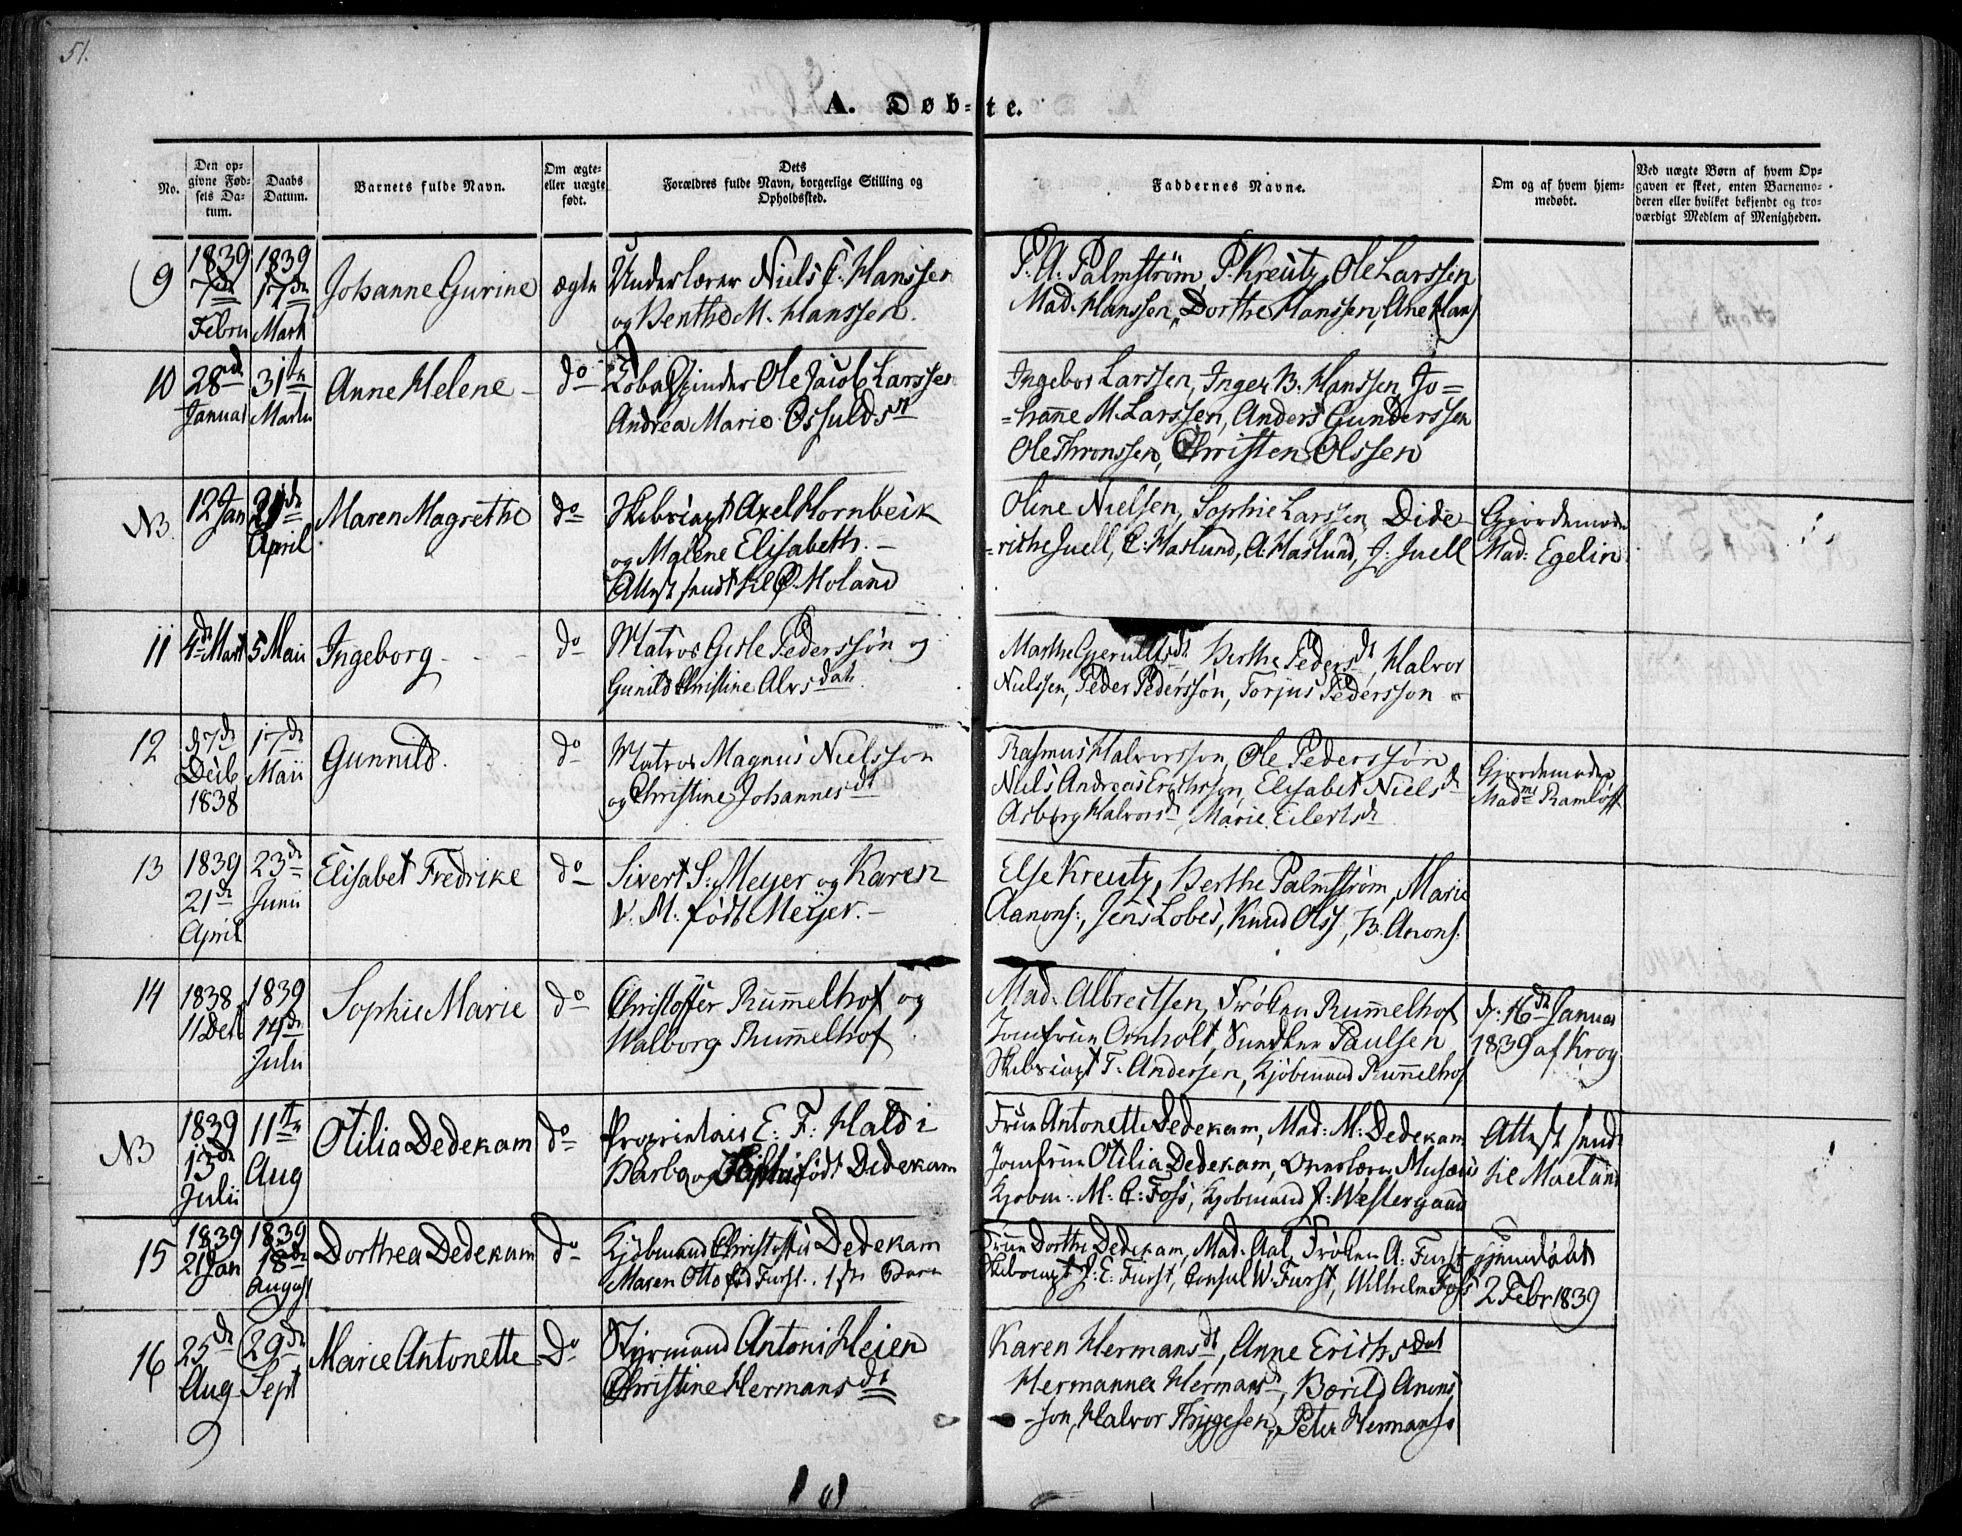 51.
A. Døb-te.
No.
Den op-
givne Fød-
sels Da-
tum.
Daabs
Datum.
Barnets fulde Navn.
Om ægte-
eller uægte
født.
Dets
Forældres fulde Navn, borgerlige Stilling og
Opholdssted.
Faddernes Navne.
Om og af hvem hjem-
medøbt.
Ved uægte Børn af hvem Op-
gaven er skeet, enten Barnemo-
deren eller hvilket bekjendt og tro-
værdigt Medlem af Menigheden.
9
1839
7de
Febru
1839
17de
Marti
Johanne Gurine
ægte
Underlærer Niels C. Hanssen
og Benthe M. Hanssen.
P. A. Palmstrøm, P. Kreutz, Ole Larssen
Mad. Hanssen, Dorthe Hanssen, Ane Hans
10
28de
Januar
31te
Marti
Anne Helene
do
Tobakspinder Ole Jacob Larssen
Andrea Marie Osfuldsdt
Ingebor Larssen, Inger B. Hanssen, Jo=
=hanne M. Larssen, Anders Gunderssen
Ole Thronssen, Christen Olssen
NB.
12 Jan
21de
April
Maren Magrethe
do
Skibscapt Axel Hornbeck
og Malene Elisabeth. -
Attest sendt til P. Moland
Oline Nielsen, Sophie Larssen, Dide
=rikke Juell, C. Haslund, A. Haslund, J. Juell
Gjordemoder
Mad: Egelin
11
4de Mart
5 Maii
Ingeborg
do
Matros Gisle Pederssøn og
Gunild Christine Alvsdatr.
Marthe Gjerulfsdt, Berthe Pedersdt, Halvor
Nielssen, Peder Pederssøn, Torjus Pedersson
12
d 7de
Decb
1838
17de
Maii
Gunnild.
do
Matros Magnus Nielsson
og Christine Johannesdt
Rasmus Halvorsson, Ole Pederssøn
Niels Andreas Erichsson, Elisabet Nielsd
Asborg Halvorsd, Marie Eilertsd
Gjordemoder
Madme Ramløff
13
1839
21de
April
23de
Junii
Elisabet Fredrike
do
Sivert S. Meyer og Karen
V. M. født Meyer. -
Else Kreutz, Berthe Palmstrøm, Marie
Aanons:, Jens Lobes, Knud Olss, B. Anons.
14
1838
11 Decb
1839
14de
Julii
Sophie Marie
do
Christoffer Rummelhof og
Walborg Rummelhof
Mad. Albreitsen, Frøken Rummelhof
Jomfrue Ornholt, Paulsen
Skibscapt T. Andersen, Kjøbmand Rummelhof
d. 16de Januar
1839 af Krog
NB
1839
13de
Julii
11te
Aug
Otilia Dedekam
do
Proprietair E. F. Hald i
Barbo og født Dedekam
Frue Antonette Dedekam, Mad: M. Dedekam
Jomfrue Otilia Dedekam, Overlærer Musæus
Kjøbm: M. C. Foss, Kjøbmand J. Westergaard
Attest sendt
til Moeland
15
1839
21 Jan
1839
18de
August
Dorthea Dedekam
do
Kjøbmand Christoffer Dedekam
Maren Otto fød Furst. 1ste Barn
Frue Dorthe Dedekam, Mad. Aal, Frøken A. Furst
Skibscapt J. E. Furst, Consul W. Furst, Wilhelm Foss
hjemdøbt
2 Febr 1839
16
25de
Aug
29de
Sept
Marie Antonette
Do
Styrmand Antoni Heien
Christine Hermansdt
Karen Hermansdt, Anne Erichsdat
Hermannea Hermansd, Boerild Anons
-son, Halvor Thygesen, Peter Hermanss